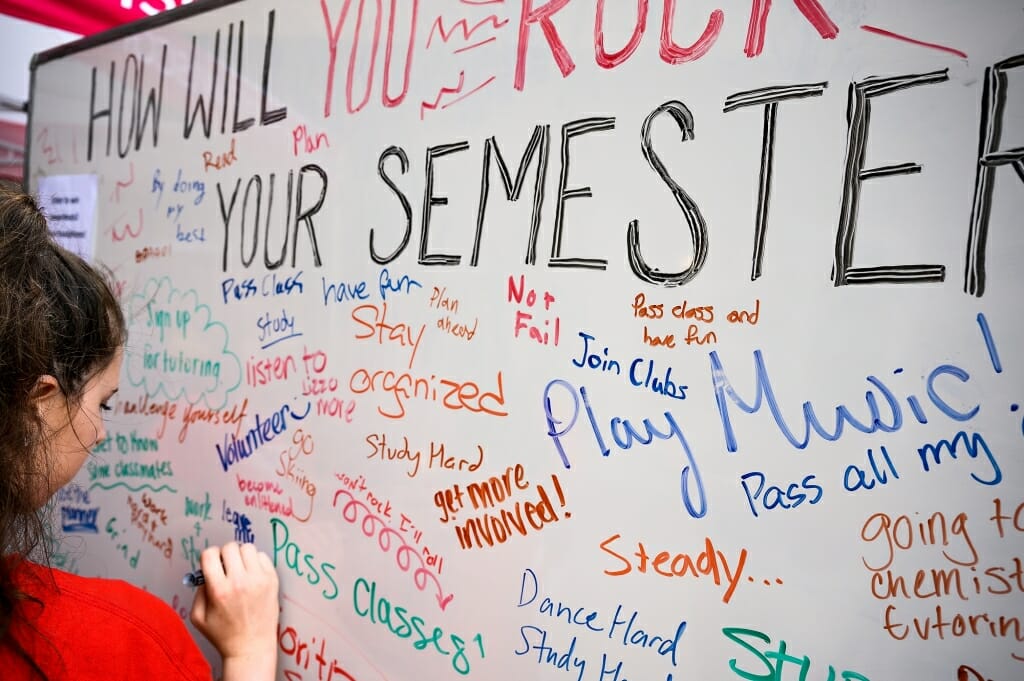 HOW WILL YOU ROCK
YOUR SEMESTER
Read
Plan
By doing
my
best
Pass Class
have fun
Plan
ahead
Not
Fail
Pass class and
have fun
Sign up
for tutoring
study
Stay
organized
listen to
lizzo
more
Join Clubs
Play Music!
challenge yourself
Volunteer
go
Skiing
Study Hard
get more
involved!
Pass all my
Get to know
some classmates
become
enlightened
won't rock, I'll roll
Steady...
going to
chemist
tutoring
planner
work
Grind
Pass Classes!
Dance Hard
Study Ha